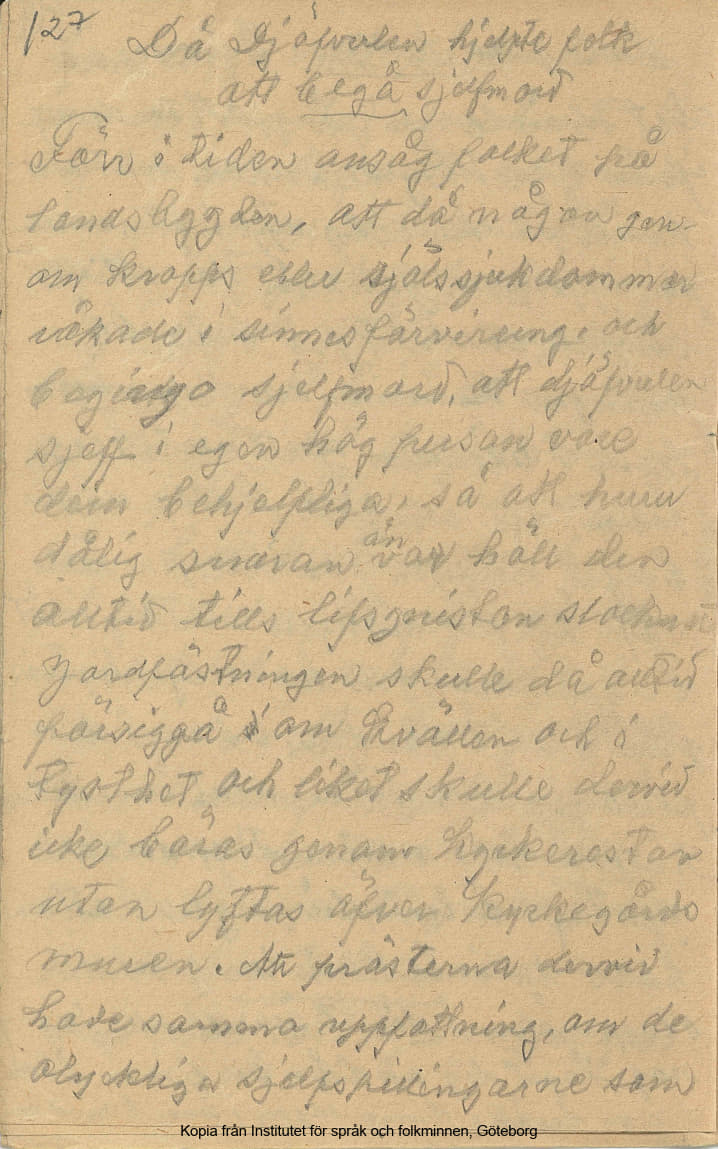 127
Då Djöfvulen hjelpte folk
att begå sjelfmord
Förr i tiden ansåg folket på
landsbygden, att då någon gen-
om kropps eller själssjukdommar
råkade i sinnesförvirring, och
begingo sjelfmord, att djöfvulen
sjelf i egen hög person vore
dem behjelpliga, så att huru
dålig snaran än var höll den
alltid tills lifsgnistan slocknat
Jordfästningen skulle då alltid
försiggå i om kvällen och i
tysthet och liket skulle dervid
icke bäras genom kyrkerestan
utan lyftas öfver kyrkegårds
muren. Att prästerna dervid
hade samma uppfattning, om de
olyckliga sjelfspillingarne som
Kopia från Institutet för språk och folkminnen, Göteborg